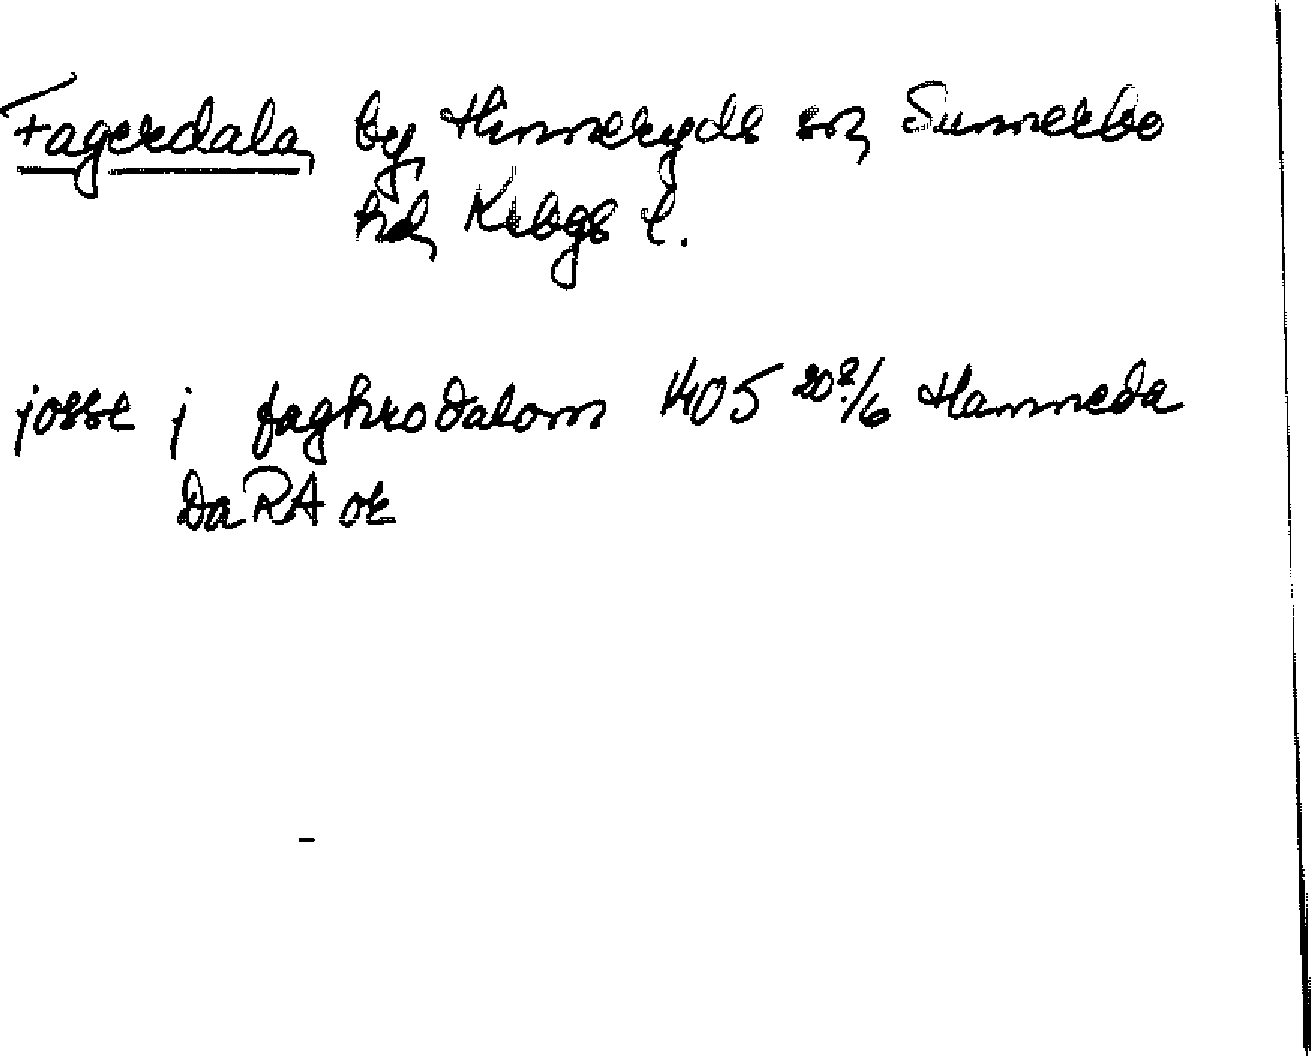 Fagerdala, by, Hinneryds sn, Sunnerbo
hd, Krbgs l.
josse j faghrodalom 1405 20?/6 Hamneda
DaRA or